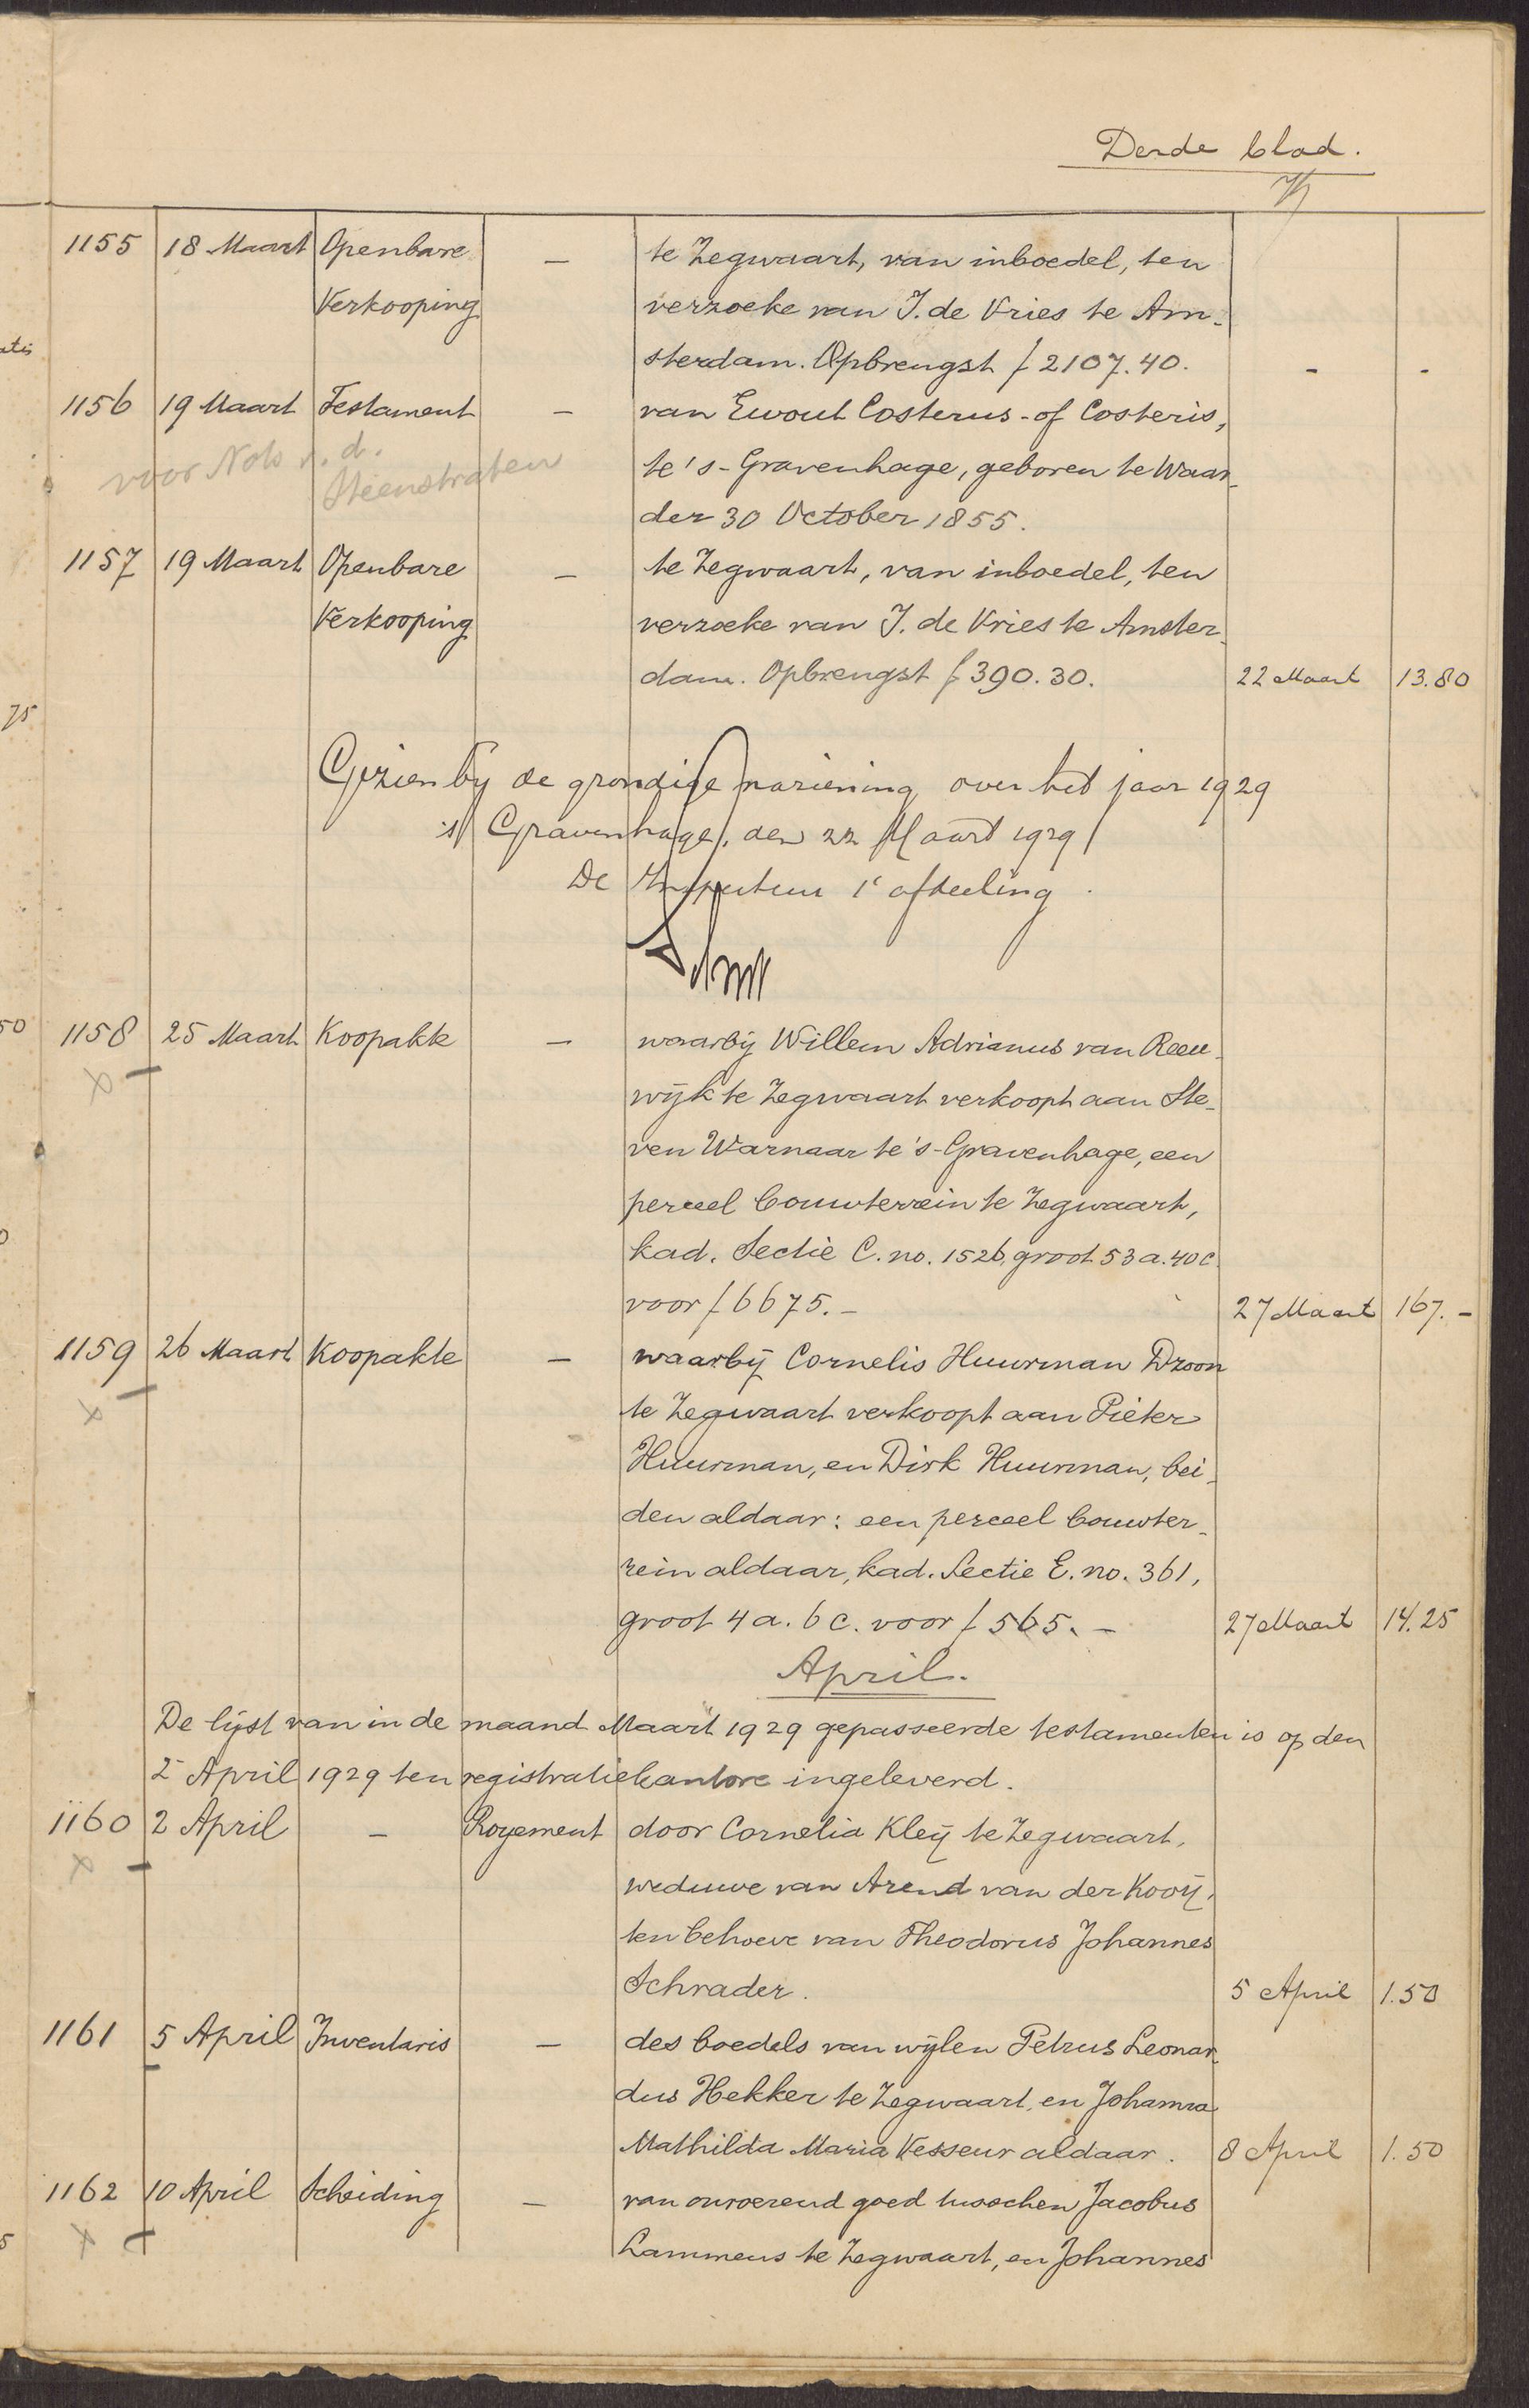 Derde blad.
1155 18 Maart Openbare — te Zegwaart, van inboedel, ten
Verkooping verzoeke van J. de Vries te Am-
sterdam. Opbrengst f 2107.40. - -
1156 19 Maart Testament — van Ewout Costerus of Costeris,
voor Nots v. d. Steenstraten
te 's-Gravenhage, geboren te Waar-
der 30 October 1855.
1157 19 Maart Openbare — te Zegwaart, van inboedel, ten
Verkooping verzoeke van J. de Vries te Amster-
dam. Opbrengst f 390.30. 22 Maart 13.80
Gezien bij de grondige nariening over het jaar 1929
's Gravenhage, den 22 Maart 1929
De Inspecteur 1e afdeeling
1158 25 Maart Koopakte — waarbij Willem Adrianus van Reeu-
wijk te Zegwaart verkoopt aan Ste-
ven Warnaar te 's-Gravenhage, een
perceel bouwterrein te Zegwaart,
kad. Sectie C. no. 1526, groot 53 a. 40 c.
voor f 6675.- 27 Maart 167.-
1159 26 Maart Koopakte — waarbij Cornelis Huurman Dzoon
te Zegwaart verkoopt aan Pieter
Huurman, en Dirk Huurman, bei-
den aldaar: een perceel bouwter-
rein aldaar, kad. Sectie E. no. 361,
groot 4 a. 6 c. voor f 565.- 27 Maart 14.25
April.
De lijst van in de maand Maart 1929 gepasseerde testamenten is op den
2 April 1929 ten registratiekantore ingeleverd.
1160 2 April — Royement door Cornelia Kleij te Zegwaart,
weduwe van Arend van der Kooij,
ten behoeve van Theodorus Johannes
Schrader. 5 April 1.50
1161 5 April Inventaris — des boedels van wijlen Petrus Leonar-
dus Hekker te Zegwaart, en Johanna
Mathilda Maria Vesseur aldaar. 8 April 1.50
1162 10 April Scheiding — van onroerend goed tusschen Jacobus
Lammens te Zegwaart, en Johannes